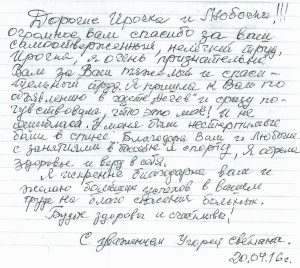 Дорогие Ирочка и Любочка!!!
огромное вам спасибо за ваш
самоотверженный, нелёгкий труд.
Ирочка, я очень признательна
Вам за Ваш тяжёлый и спаси-
тельный труд. Я пришла к Вам по
объявлению в и сразу по-
чувствовала, что это моё! и не
ошиблась. У меня были нестерпимые
боли в спине. Благодаря Вам и Любочке
с занятиями в и спорту, я обрела
здоровье и веру в себя.
Я искренне благодарна вам и
желаю больших успехов в вашем
труде на благо спасения больных.
Будьте здоровы и счастливы!
С уважением Светлана.
20.04.16г.